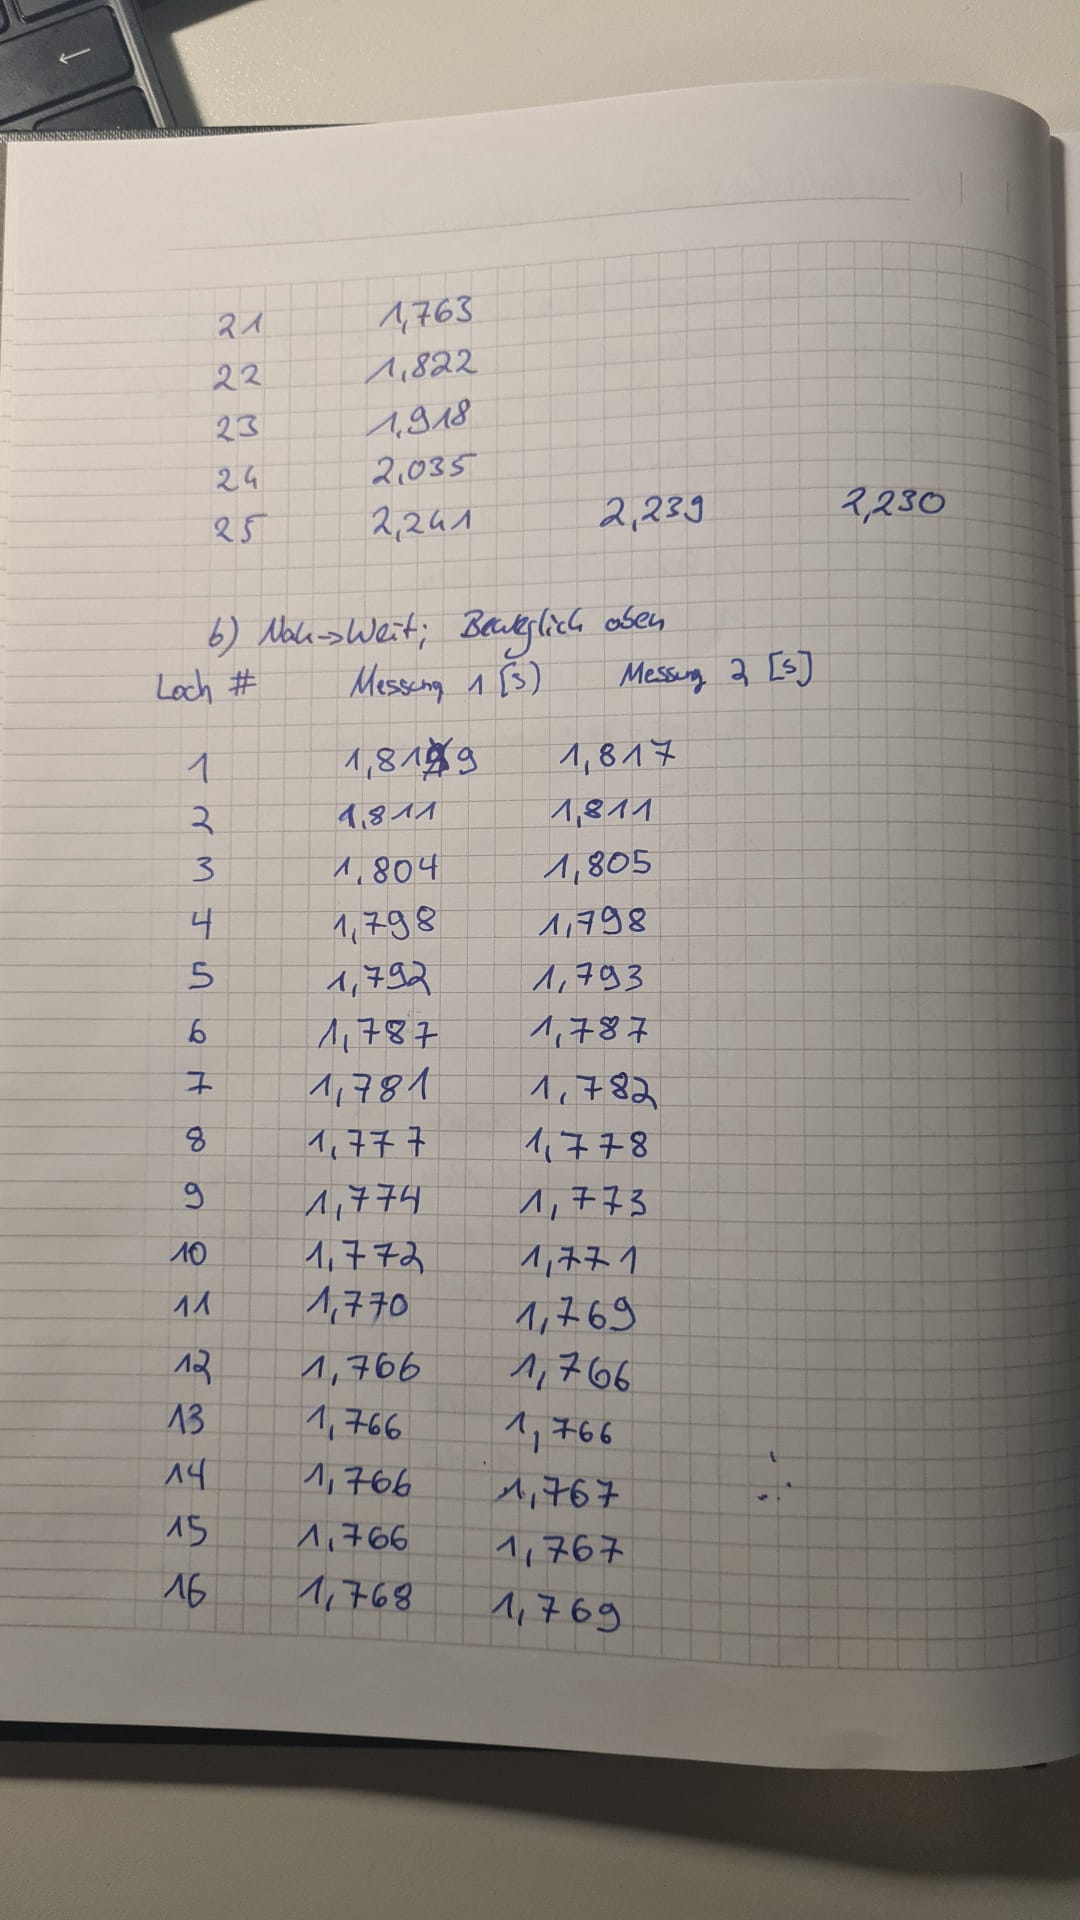 21 1,763
22 1,822
23 1,918
24 2,035
25 2,241 2,239 2,230
b) Nah->Weit; Beweglich oben
Loch # Messung 1 [s] Messung 2 [s]
1 1,819 1,817
2 1,811 1,811
3 1,804 1,805
4 1,798 1,798
5 1,792 1,793
6 1,787 1,787
7 1,781 1,782
8 1,777 1,778
9 1,774 1,773
10 1,772 1,771
11 1,770 1,769
12 1,766 1,766
13 1,766 1,766
14 1,766 1,767
15 1,766 1,767
16 1,768 1,769